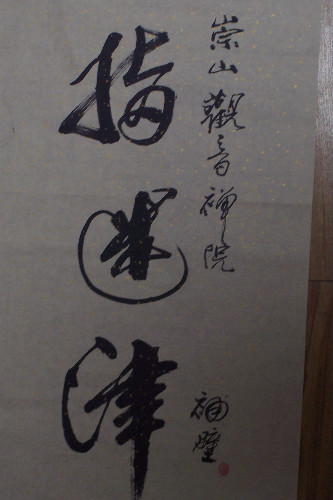 崇山觀音禪院
補壁
指迷津